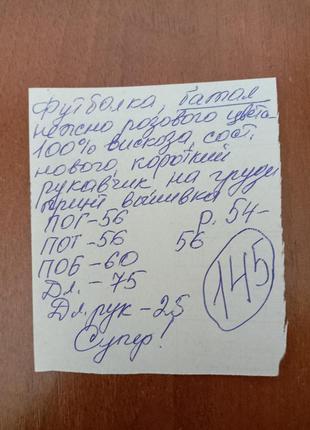 Футболка, батал
нежно розового цвета
100% вискоза, сост.
нового, короткий
рукавчик, на груди
принт вышивка
ПОГ-56 р. 54-
ПОТ-56 56
ПОБ-60
Дл. - 75
Дл. рук - 25
Супер!
145